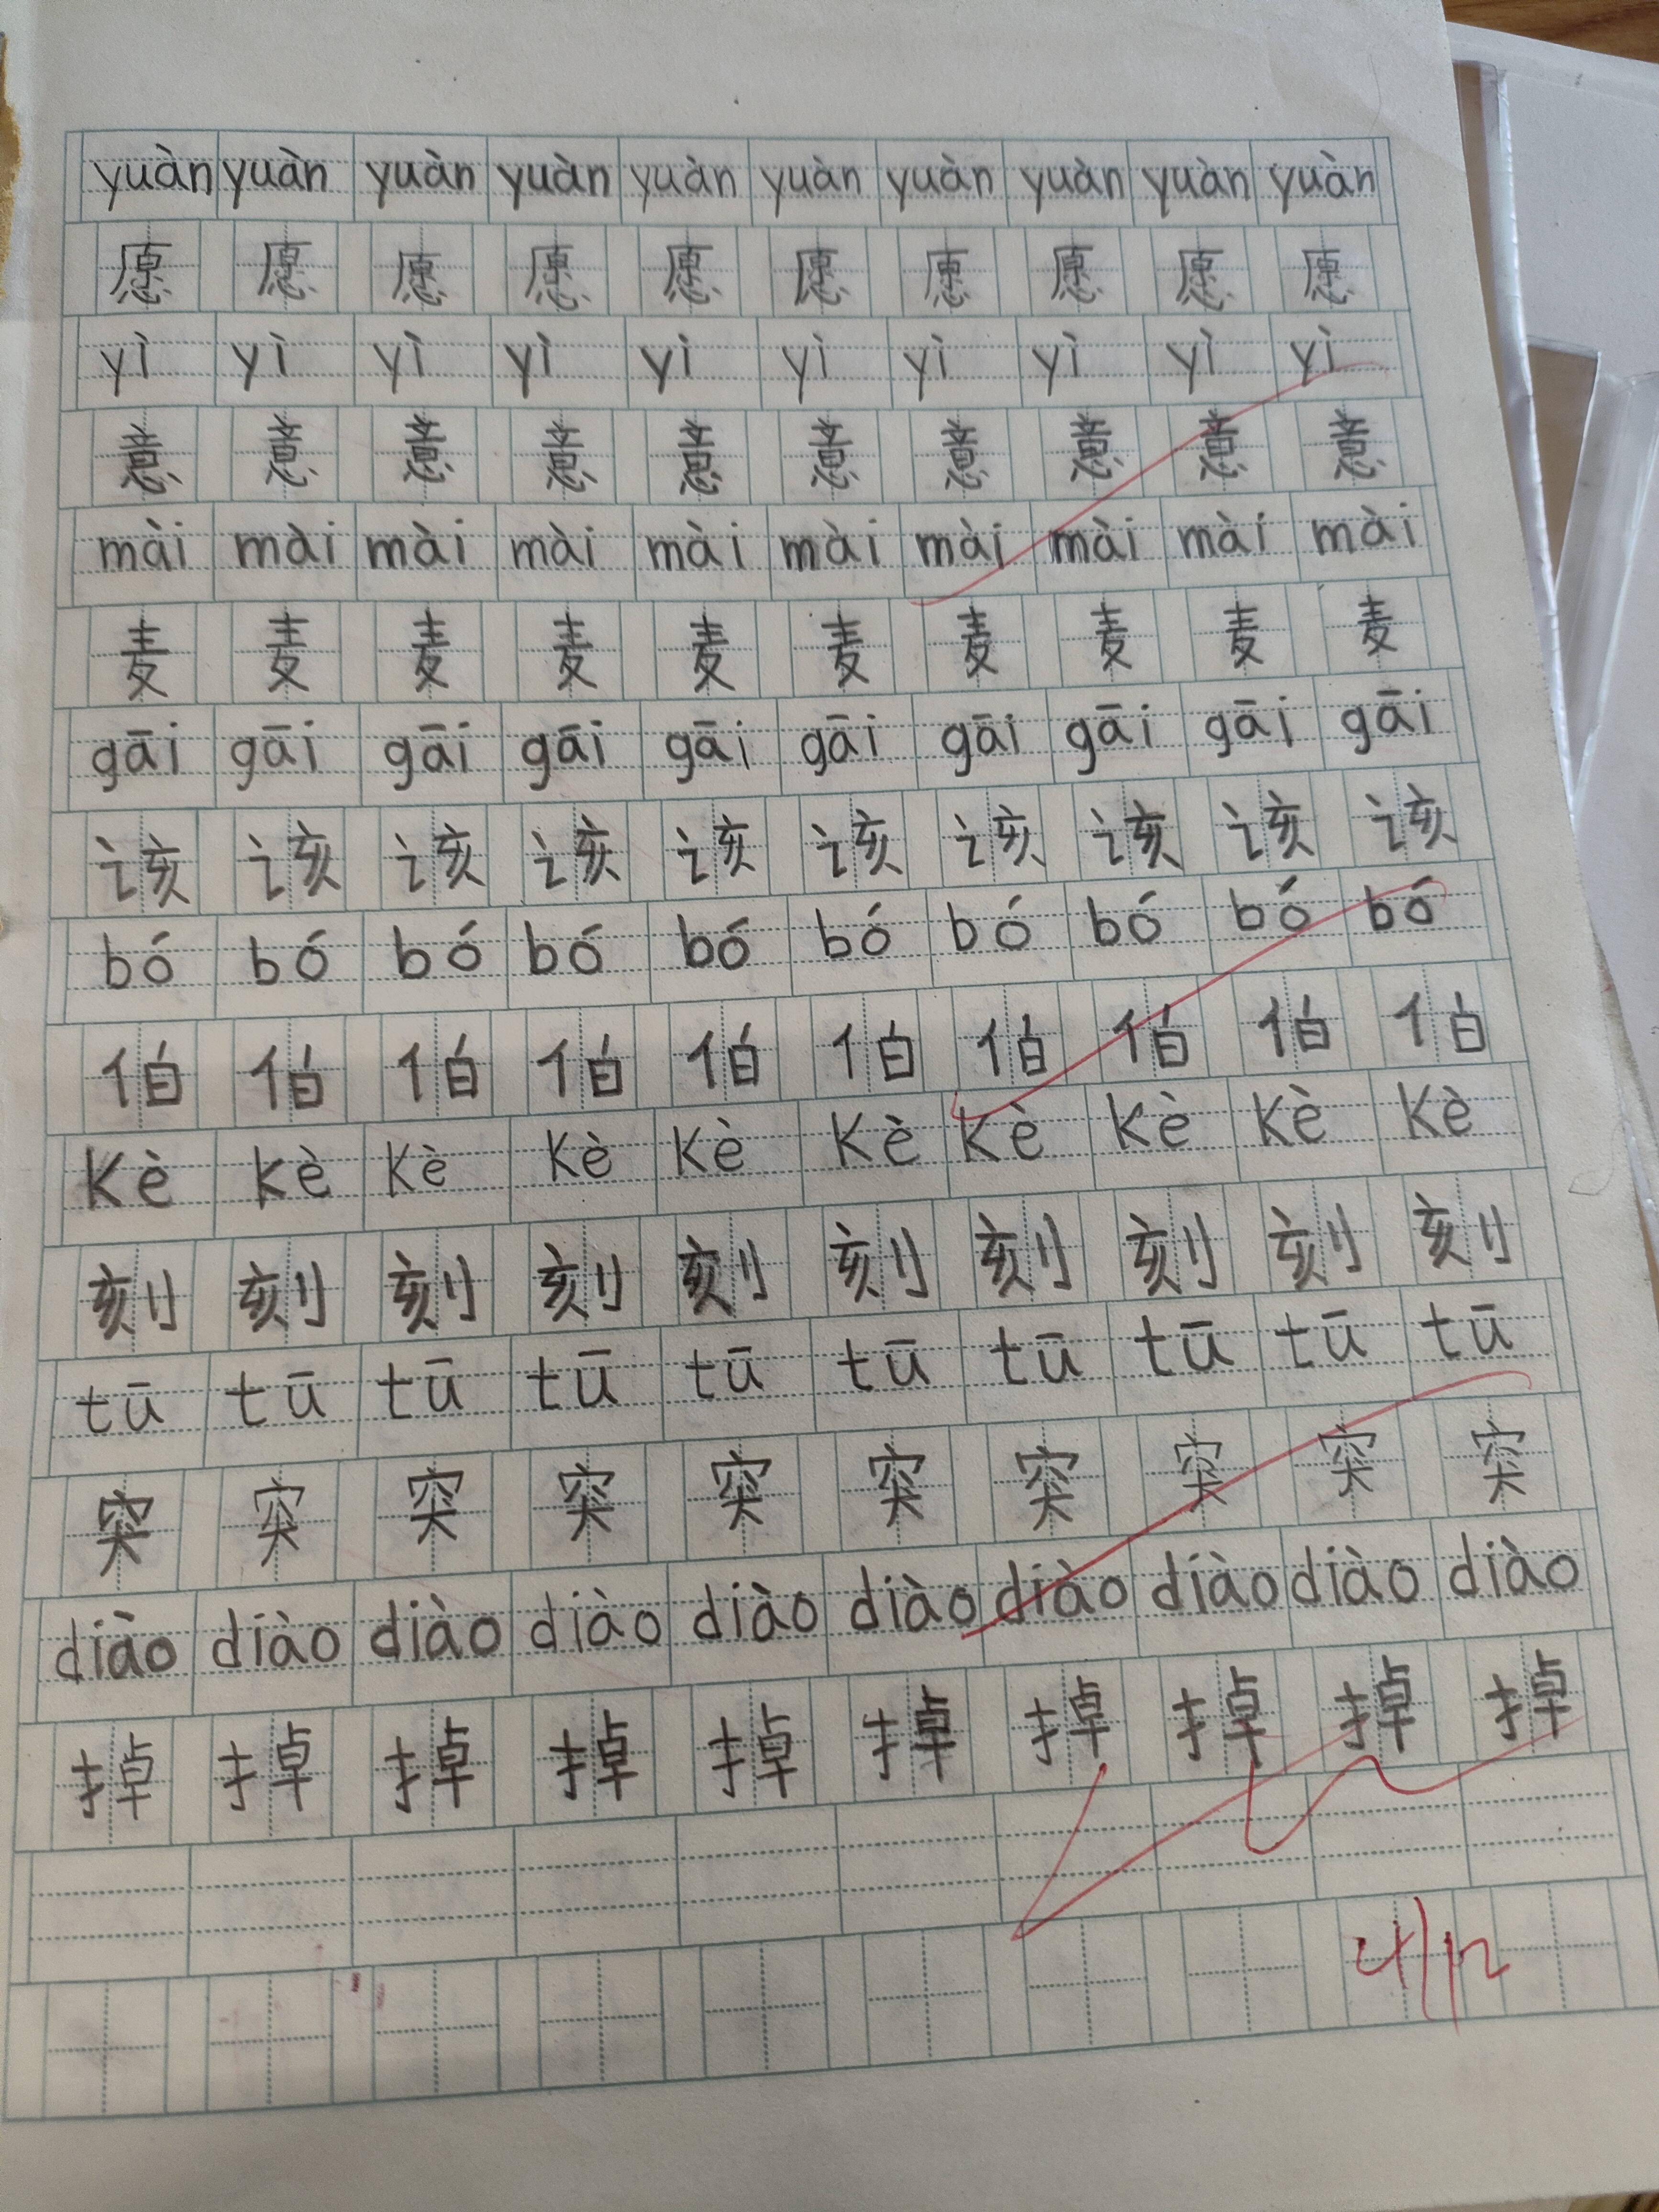 yuàn yuàn yuàn yuàn yuàn yuàn yuàn yuàn yuàn yuàn
愿 愿 愿 愿 愿 愿 愿 愿 愿 愿
yì yì yì yì yì yì yì yì yì yì
意 意 意 意 意 意 意 意 意 意
mài mài mài mài mài mài mài mài mài mài
麦 麦 麦 麦 麦 麦 麦 麦 麦 麦
gāi gāi gāi gāi gāi gāi gāi gāi gāi gāi
该 该 该 该 该 该 该 该 该 该
bó bó bó bó bó bó bó bó bó bó
伯 伯 伯 伯 伯 伯 伯 伯 伯 伯
kè kè kè kè kè kè kè kè kè kè
刻 刻 刻 刻 刻 刻 刻 刻 刻 刻
tū tū tū tū tū tū tū tū tū tū
突 突 突 突 突 突 突 突 突 突
diào diào diào diào diào diào diào diào diào diào
掉 掉 掉 掉 掉 掉 掉 掉 掉 掉